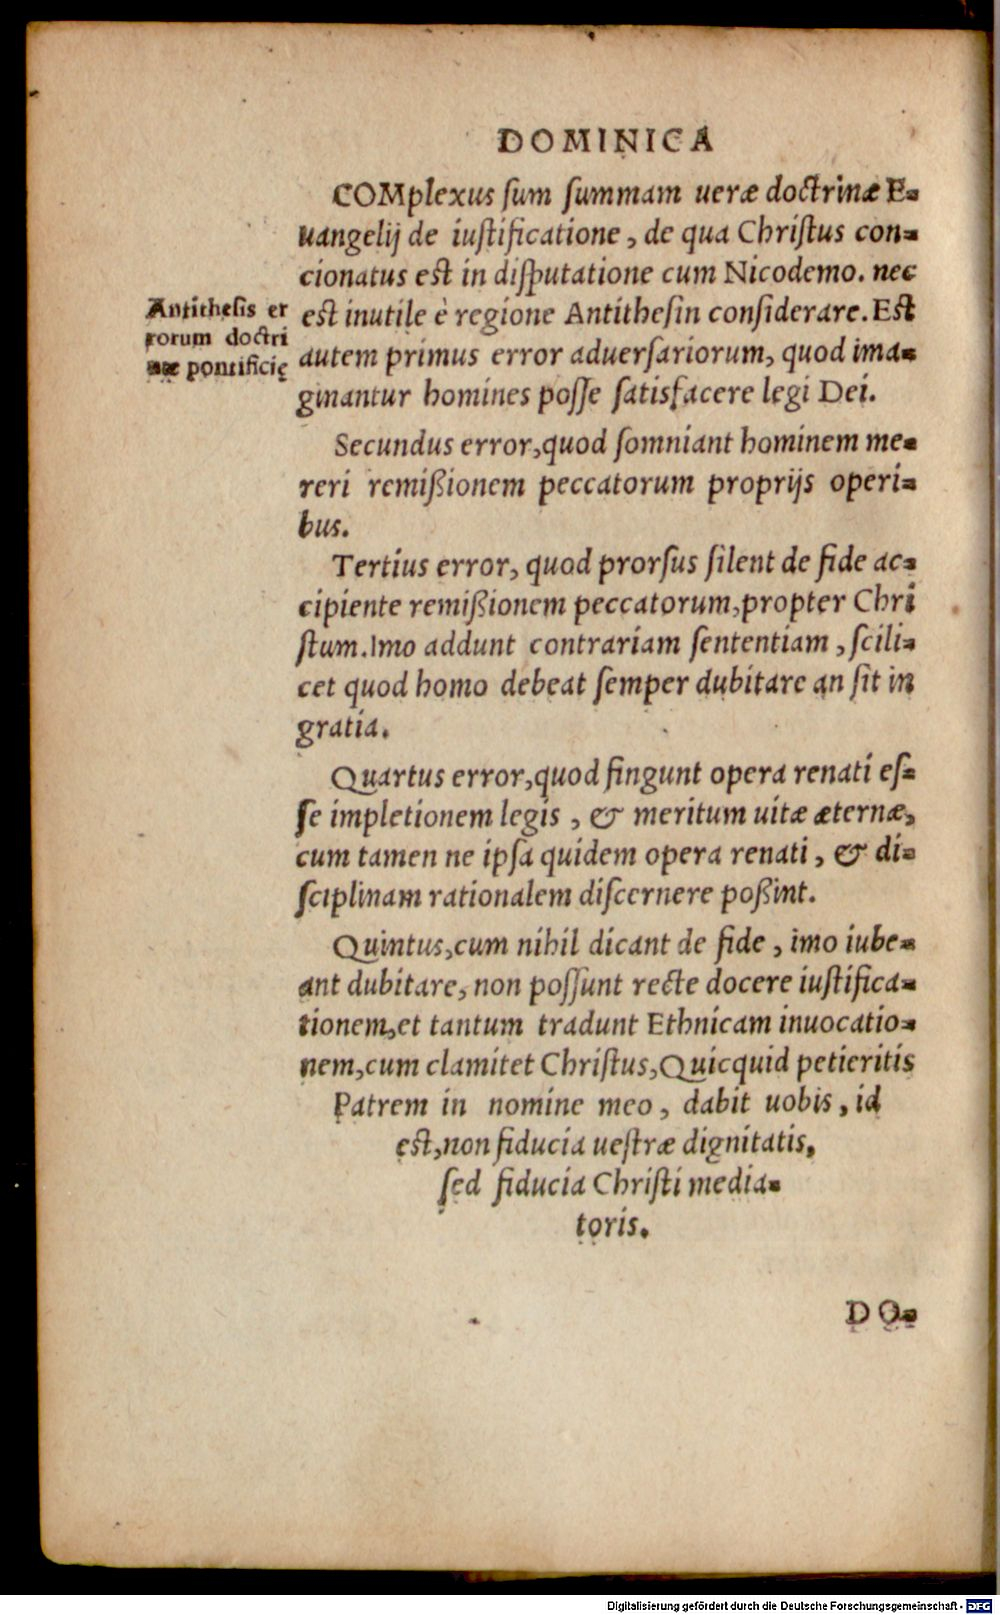 DOMINICA
COMplexus ſum ſummam ueræ doctrinæ E-
uangelij de iuſtificatione, de qua Chriſtus con-
cionatus est in diſputatione cum Nicodemo. nec
est inutile è regione Antitheſin conſiderare. Est
autem primus error aduerſariorum, quod ima-
ginantur homines poſſe ſatisfacere legi Dei.
Antitheſis er
rorum doctri
næ pontificię
Secundus error, quod ſomniant hominem me-
reri remißionem peccatorum proprijs operi-
bus.
Tertius error, quod prorſus ſilent de fide ac-
cipiente remißionem peccatorum, propter Chri
ſtum. Imo addunt contrariam ſententiam, ſcili-
cet quod homo debeat ſemper dubitare an ſit in
gratia.
Quartus error, quod fingunt opera renati eſ-
ſe impletionem legis, & meritum uitæ æternæ,
cum tamen ne ipſa quidem opera renati, & di-
ſciplinam rationalem diſcernere poßint.
Quintus, cum nihil dicant de fide, imo iube-
ant dubitare, non poſſunt recte docere iuſtifica-
tionem, et tantum tradunt Ethnicam inuocatio-
nem, cum clamitet Chriſtus, Quicquid petieritis
Patrem in nomine meo, dabit uobis, id
est, non fiducia ueſtræ dignitatis,
ſed fiducia Chriſti media-
toris.
DO-
Digitalisierung gefördert durch die Deutsche Forschungsgemeinschaft - DFG